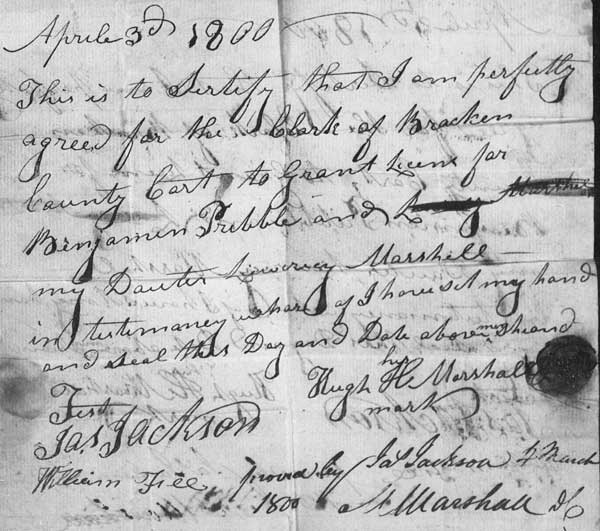 Aprile 3d 1800
This is to Sertify that I am perfectly
agreed for the Clark of Bracken
County Cort to Grant Licens for
Benjamen Tribble and
my Dauter Lowrey Marshell
in testimaney whare of I have set my hand
and seal this Day and Date above
Hugh H. Marshall
his
mark
Test
Jas Jackson
William Fill
proved by Jas Jackson
1800
M Marshall